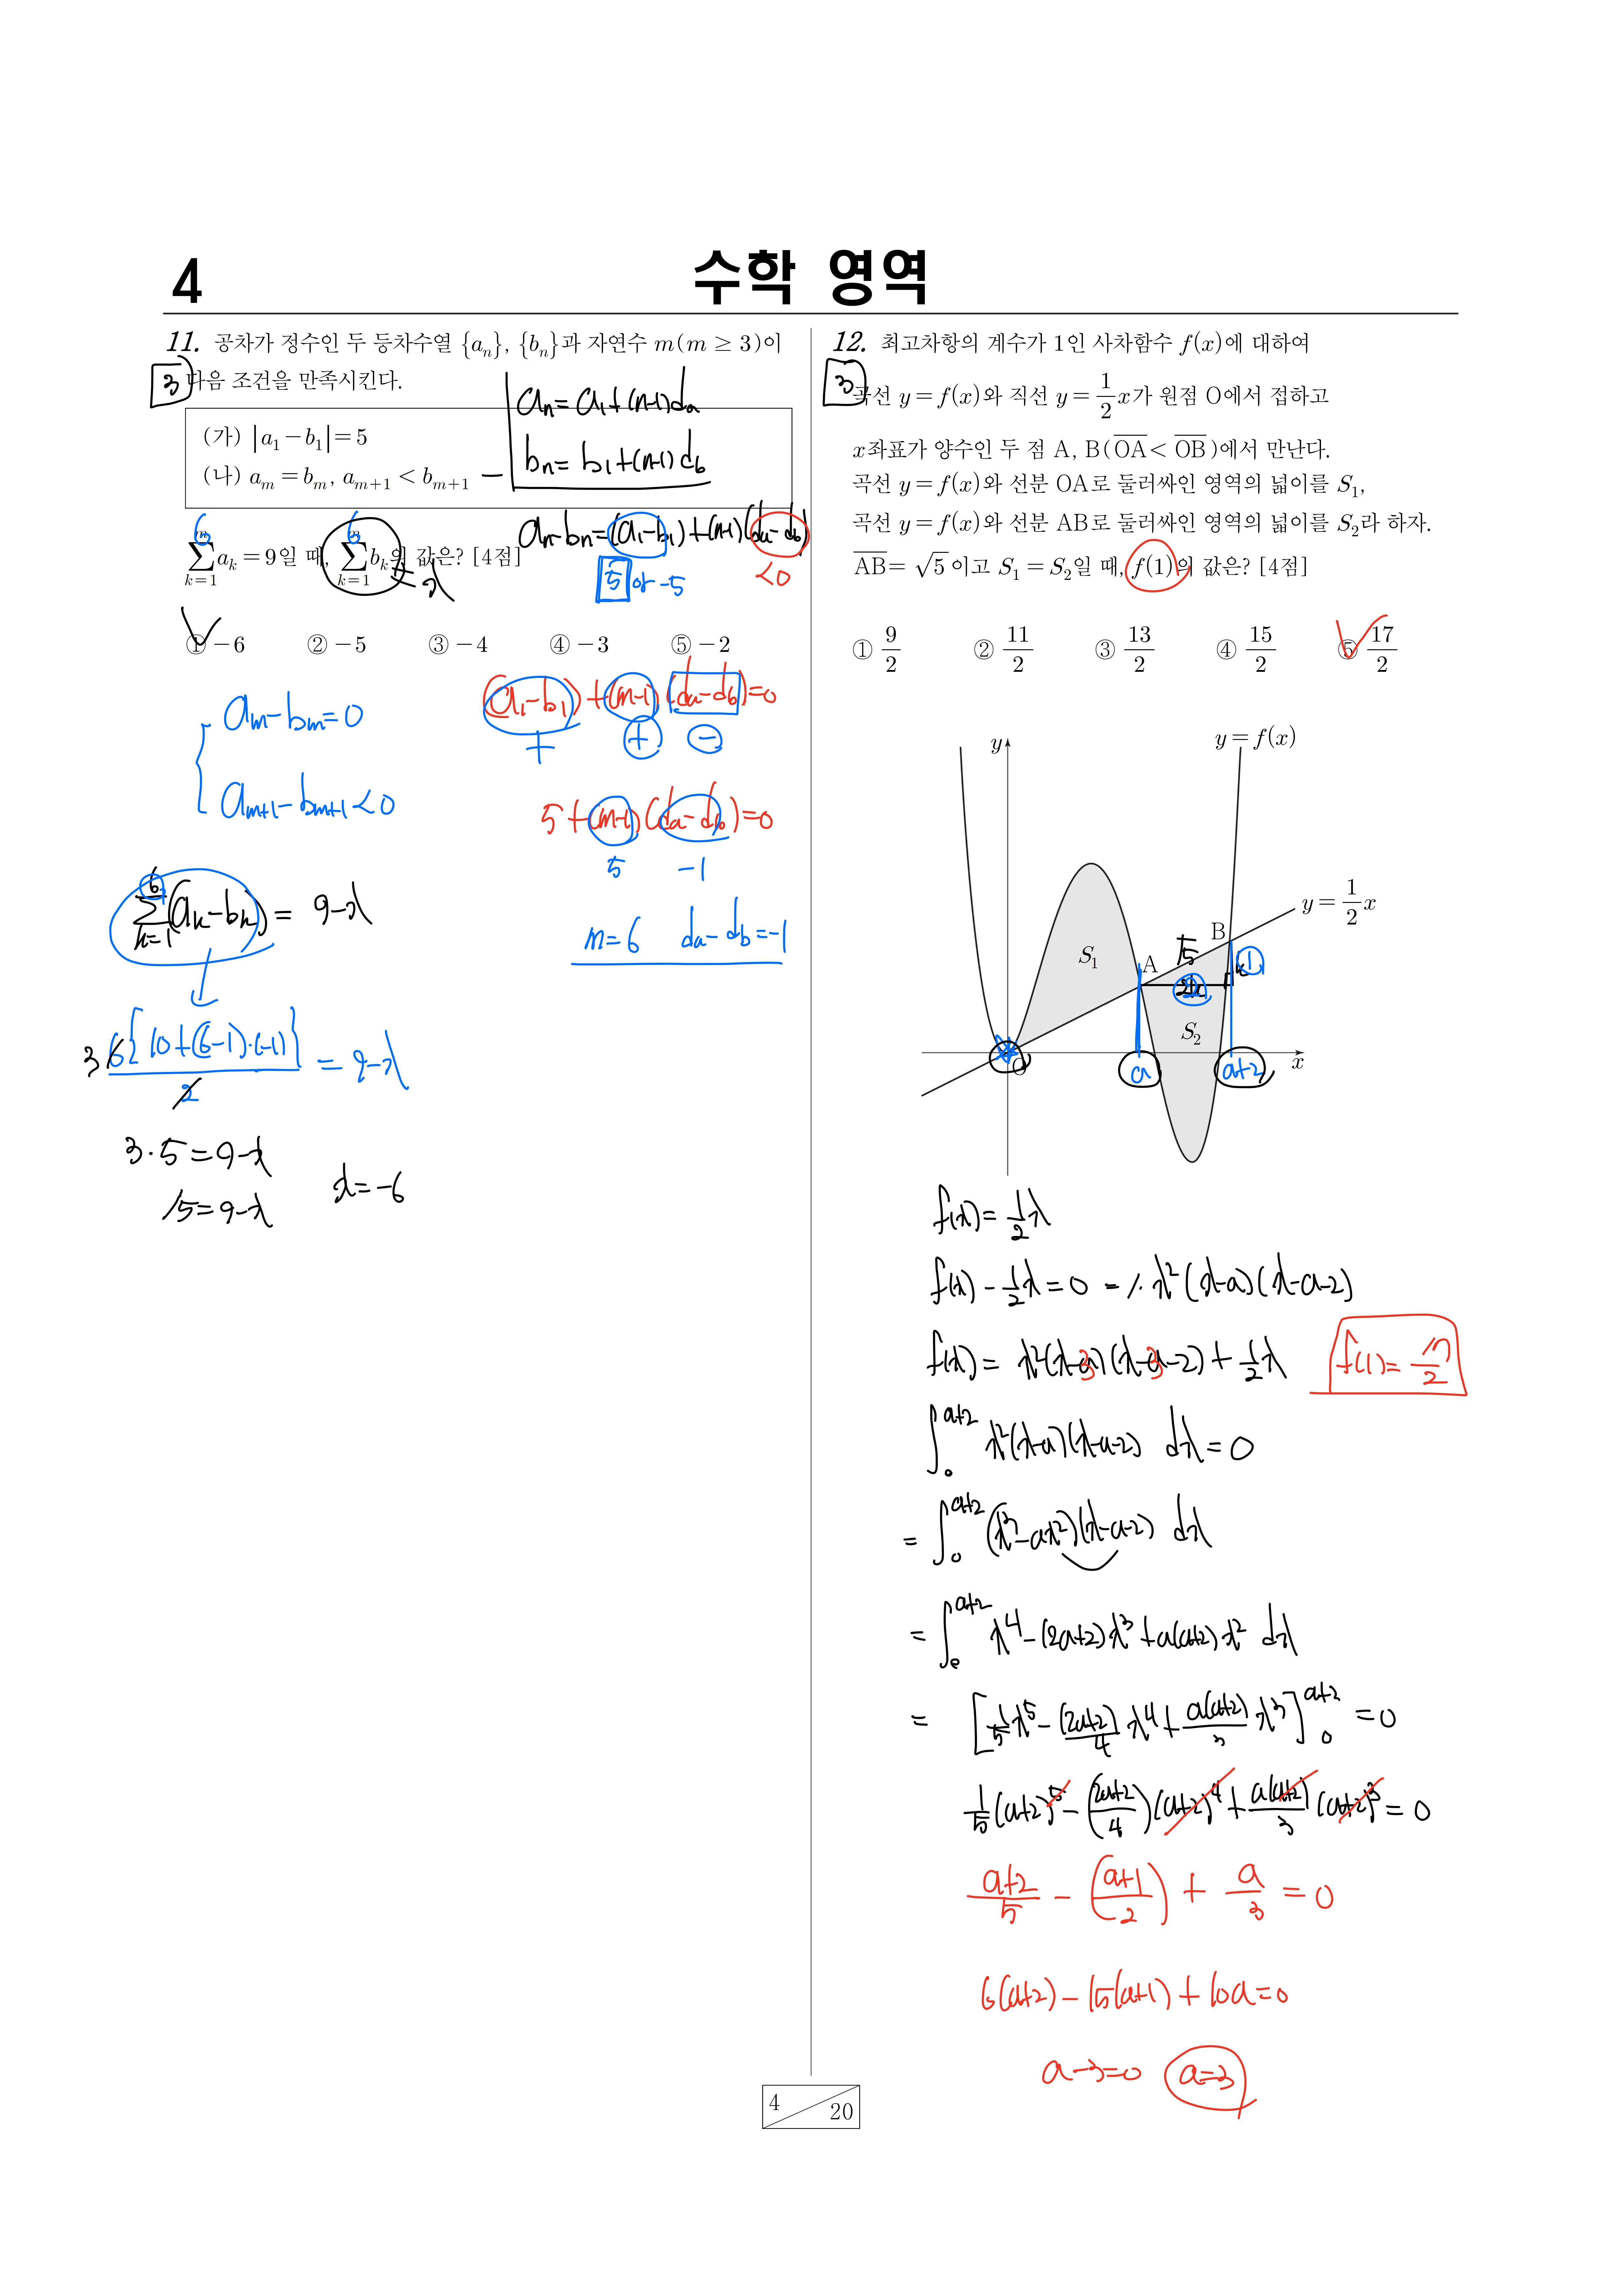 4
수학 영역
11. 공차가 정수인 두 등차수열 {aₙ}, {bₙ}과 자연수 m(m ≥ 3)이
3
다음 조건을 만족시킨다.
(가) |a₁ − b₁| = 5
(나) aₘ = bₘ, aₘ₊₁ < bₘ₊₁
aₙ = a₁ + (n−1)dₐ
− bₙ = b₁ + (n−1)d_b
aₙ − bₙ = (a₁−b₁) + (n−1)(dₐ−d_b)
5 or −5
<0
6 6
∑_{k=1}^{m} aₖ = 9일 때, ∑_{k=1}^{m} bₖ의 값은? [4점]
= x
① −6 ② −5 ③ −4 ④ −3 ⑤ −2
aₘ − bₘ = 0
aₘ₊₁ − bₘ₊₁ < 0
(a₁−b₁) + (m−1)(dₐ−d_b) = 0
+ + −
5 + (m−1)(dₐ−d_b) = 0
5 −1
m=6 dₐ−d_b = −1
∑_{k=1}^{6} (aₖ−bₖ) = 9−x
3 6{10+(6−1)·(−1)} / 2 = 9−x
3·5 = 9−x
15 = 9−x
x = −6
12. 최고차항의 계수가 1인 사차함수 f(x)에 대하여
3
곡선 y = f(x)와 직선 y = 1/2 x가 원점 O에서 접하고
x좌표가 양수인 두 점 A, B(OA < OB)에서 만난다.
곡선 y = f(x)와 선분 OA로 둘러싸인 영역의 넓이를 S₁,
곡선 y = f(x)와 선분 AB로 둘러싸인 영역의 넓이를 S₂라 하자.
AB = √5 이고 S₁ = S₂일 때, f(1)의 값은? [4점]
① 9/2 ② 11/2 ③ 13/2 ④ 15/2 ⑤ 17/2
y
y = f(x)
y = 1/2 x
B
√5
S₁
A
1
2
S₂
O
a
a+2
x
f(x) = 1/2 x
f(x) − 1/2 x = 0 = 1·x²(x−a)(x−a−2)
f(x) = x²(x−3)(x−3−2) + 1/2 x
f(1) = 17/2
∫₀^{a+2} x²(x−a)(x−a−2) dx = 0
= ∫₀^{a+2} (x³−ax²)(x−a−2) dx
= ∫₀^{a+2} x⁴ − (2a+2)x³ + a(a+2)x² dx
= [1/5 x⁵ − (2a+2)/4 x⁴ + a(a+2)/3 x³]₀^{a+2} = 0
1/5 (a+2)⁵ − ((2a+2)/4)(a+2)⁴ + a(a+2)/3 (a+2)³ = 0
(a+2)/5 − ((a+1)/2) + a/3 = 0
6(a+2) − 15(a+1) + 10a = 0
a−3=0 a=3
4 20